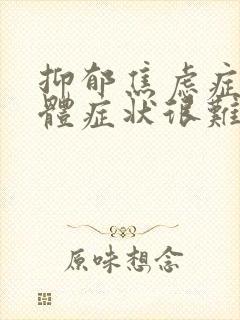 抑郁焦虑症
體症状很難
原味想念